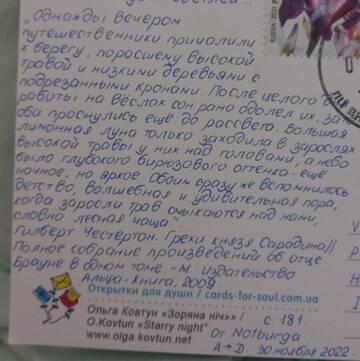 „Однажды вечером
путешественники причалили
к берегу, поросшему высокой
травой и низкими деревьями с
подрезанными кронами. После целого дня
работы на вёслах сон рано одолел их, зато
оба проснулись ещё до рассвета. Большая
лимонная луна только заходила в зарослях
высокой травы у них над головами, а небо
было глубокого бирюзового оттенка – ещё
ночное, но яркое. Обоим сразу же вспомнилось
детство, волшебная и удивительная пора,
когда заросли трав смыкаются над нами,
словно лесная чаща".
Гилберт Честертон. Грехи князя Сарадина//
Полное собрание произведений об отце
Брауне в одном томе. – М.: Издательство
Альфа-Книга, 2009
Открытки для души / cards-for-soul.com.ua
Ольга Ковтун «Зоряна ніч» /
O.Kovtun "Starry night"
www.olga-kovtun.net
с 181.
Dr Notburga
A→D. 30 ноября 2022.
RUSSIA 2021